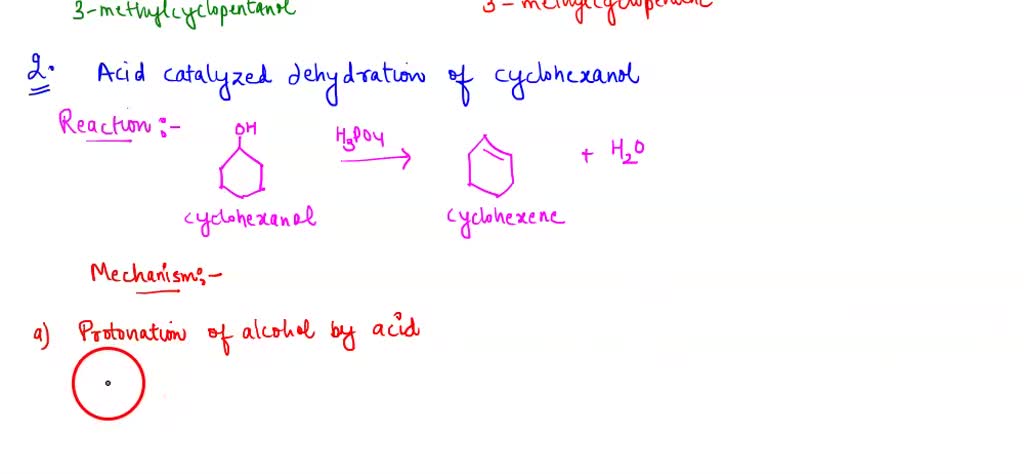 3-methylcyclopentanol 3-methylcyclopentene
2. Acid catalyzed dehydration of cyclohexanol
Reaction:-
OH H3PO4 + H2O
cyclohexanol cyclohexene
Mechanism:-
a) Protonation of alcohol by acid